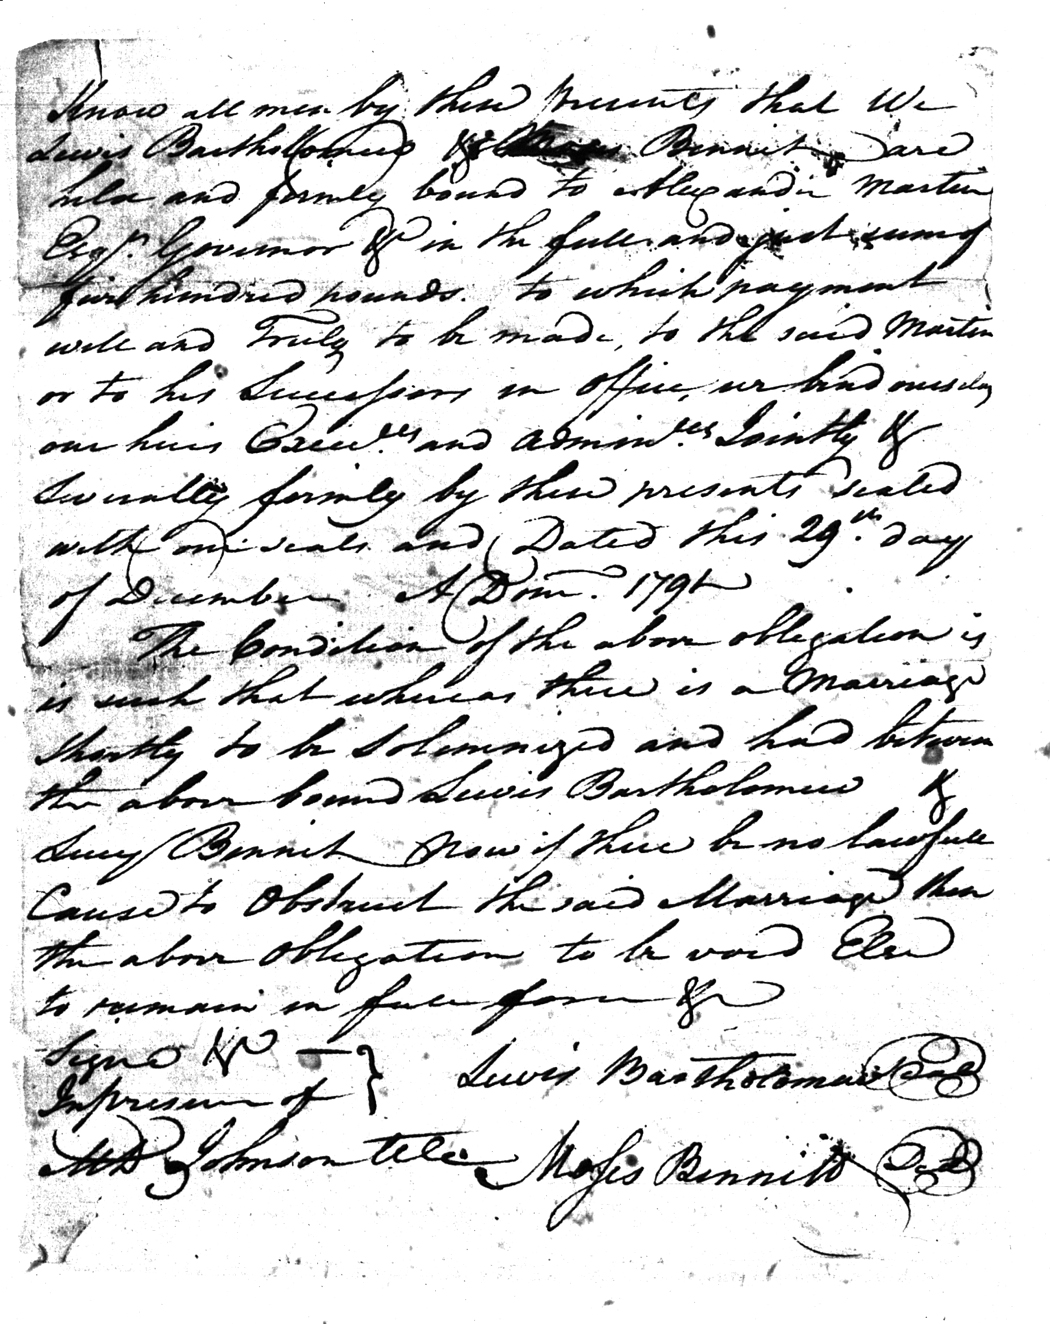 Know all men by these presents that We
Lewis Bartholomew & Moses Bennit are
held and firmly bound to Alexander Martin
Esqr. Governor & in the full and just sum of
five hundred pounds. to which payment
well and Truly to be made, to the said Martin
or to his Successors in office, we bind ourselves
our heirs Execu.ters and admin.ters Jointly &
Severally firmly by these presents sealed
with our seals and Dated this 29th. day
of December A Dom. 1791
The Condition of the above obligation is
is such that whereas there is a Marriage
shortly to be Solemnized and had between
the above bound Lewis Bartholomew &
Lucy Bennit Now if there be no lawfull
Cause to Obstruct the said Marriage then
the above Obligation to be void Else
to remain in full force &
Signd & —
In presence of
Lewis Bartholomew Seal
Johnson
Moses Bennitt Seal